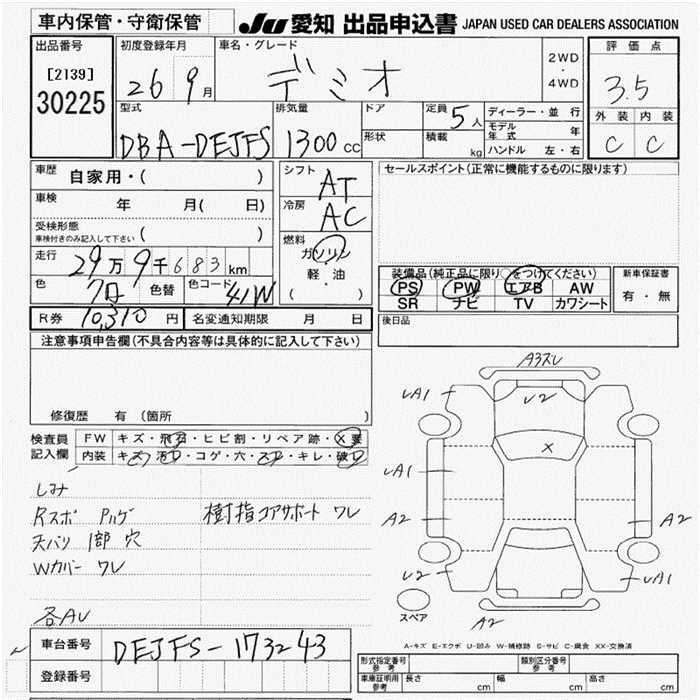 車内保管・守衛保管
JU 愛知 出品申込書 JAPAN USED CAR DEALERS ASSOCIATION
出品番号
[2139]
30225
初度登録年月
26 9月
車名・グレード
デミオ
2WD
・
4WD
評価点
3.5
外装 内装
C C
型式
DBA-DEJFS
排気量
1300cc
ドア
形状
定員 5人
積載 kg
ディーラー・並行
モデル年式 年
ハンドル 左・右
車歴
自家用・( )
車検
年 月( 日)
受検形態
車検付きのみ記入して下さい ( )
走行
29万9千683km
色 クロ 色替 色コード 41W
シフト AT
冷房 AC
燃料
ガソリン
軽・油
( )
セールスポイント(正常に機能するものに限ります)
装備品(純正品に限り○をつけてください)
PS PW エアB AW
SR ナビ TV カワシート
新車保証書
有・無
R券 10,310円 名変通知期限 月 日
後日品
注意事項申告欄(不具合内容等は具体的に記入して下さい)
修復歴 有(箇所 )
検査員
記入欄
FW キズ・飛石・ヒビ割・リペア跡・X要
内装 キズ・汚れ・コゲ・穴・スレ・キレ・破レ
しみ
Rスポ Pハゲ 樹指コアサポート ワレ
天バリ 1部 穴
Wカバー ワレ
各AU
A3スレ
UA1
U2
X
UA1
A2
A2
U2
UA1
A2
スペア
A-キズ E-エクボ U-凹み W-補修跡 S-サビ C-腐食 XX-交換済
車台番号 DEJFS-173243
登録番号
型式指定番号 参考
類別区分番号 参考
車庫証明用 参考 長さ cm 幅 cm 高さ cm